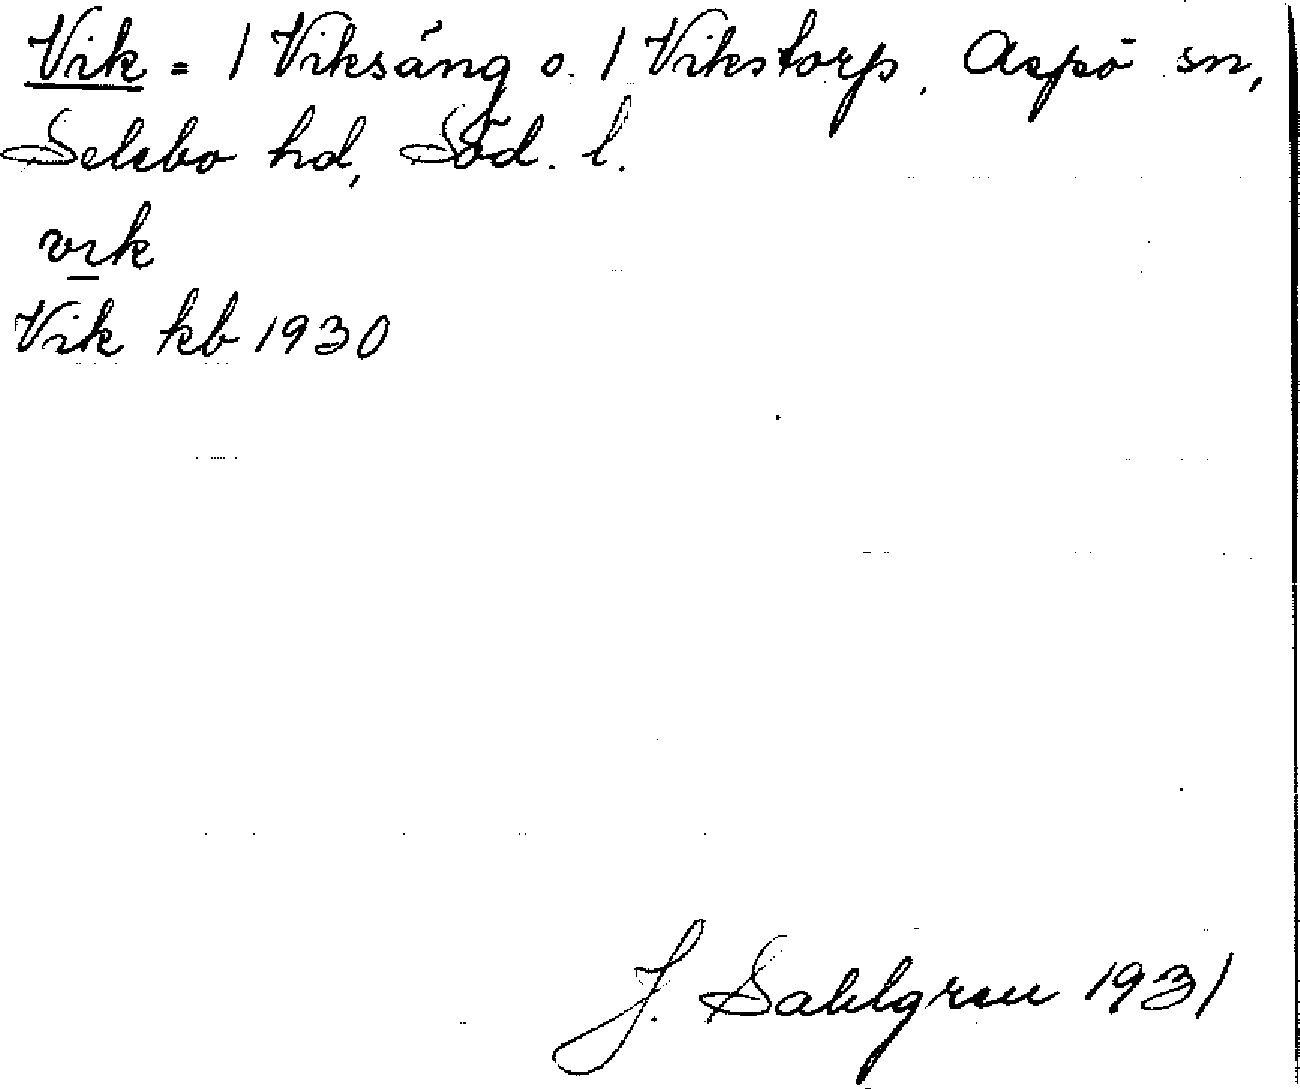 Vik = / Viksäng o. / Vikstorp, Aspö sn,
Selebo hd, Söd. l.
vik
Vik kb 1930
J. Sahlgren 1931